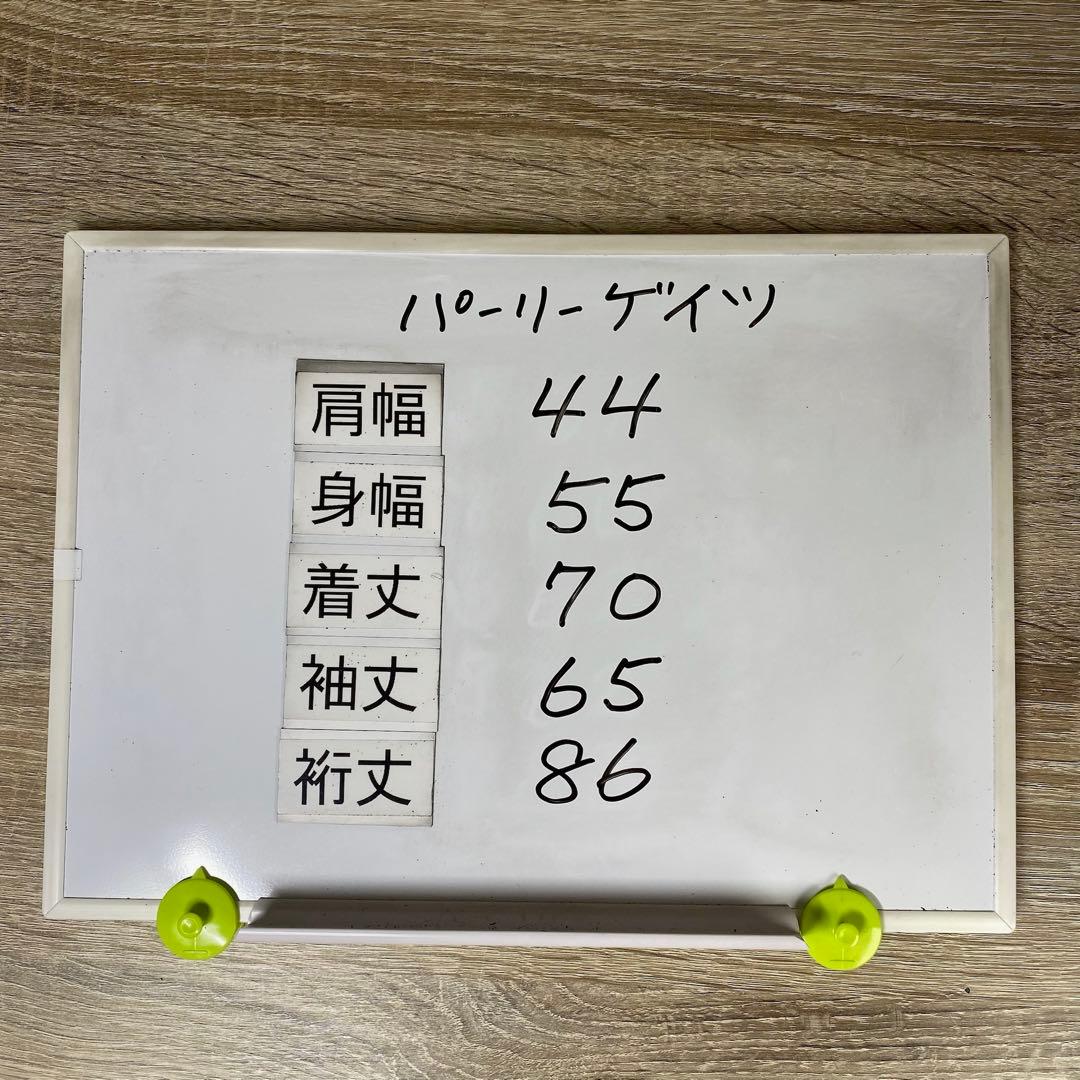 パーリーゲイツ
肩幅 44
身幅 55
着丈 70
袖丈 65
裄丈 86